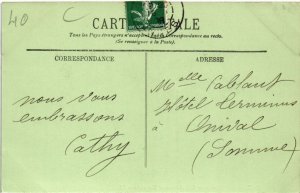 40
CARTE POSTALE
Tous les Pays étrangers n'acceptent pas la Correspondance au recto.
(Se renseigner à la Poste).
CORRESPONDANCE
ADRESSE
nous vous
embrassons
Cathy
Melle
Hôtel Terminus
à Onival
(Somme)